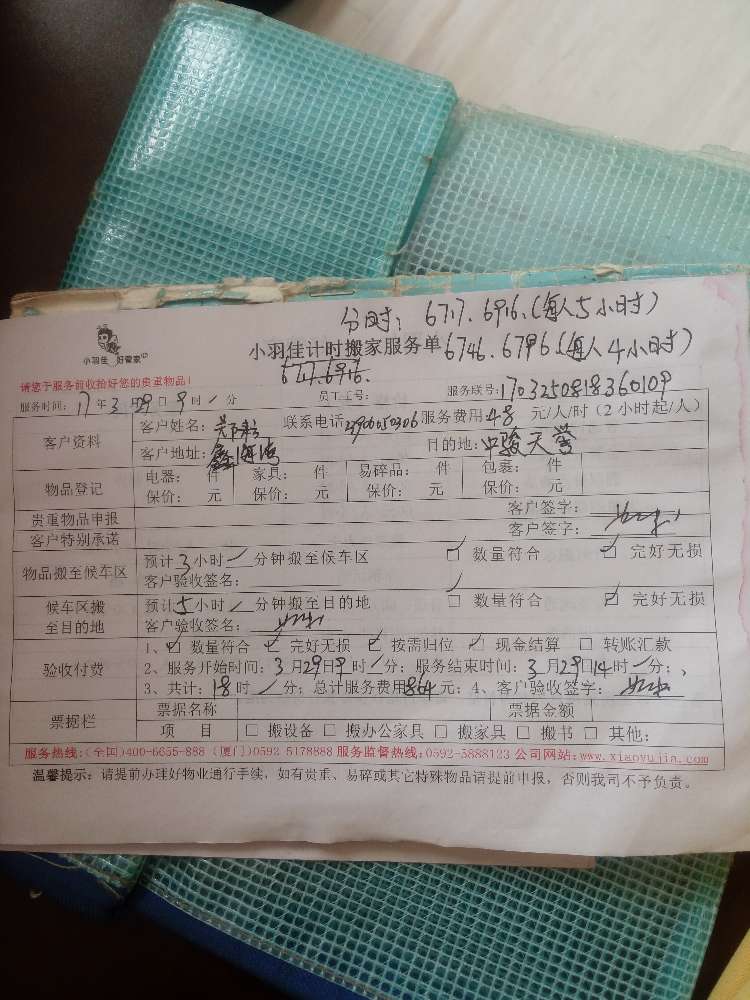 分时：6717.6916.(每人5小时)
小羽佳 好管家
小羽佳计时搬家服务单 6746.6796.(每人4小时)
6717.6916.
请您于服务前收拾好您的贵重物品！
员工工号：
服务联号：1703250818360109
服务时间：17年3月29日9时/分
客户资料
客户姓名：郑 联系电话 服务费用 48 元/人/时（2小时起/人）
客户地址： 目的地：中骏天誉
物品登记
电器： 件 家具： 件 易碎品： 件 包裹： 件
保价： 元 保价： 元 保价： 元 保价： 元
贵重物品申报 客户签字：
客户特别承诺 客户签字：
物品搬至候车区
预计3小时/分钟搬至候车区 □ 数量符合 ☑ 完好无损
客户验收签名：
候车区搬至目的地
预计5小时/分钟搬至目的地 □ 数量符合 ☑ 完好无损
客户验收签名：
验收付费
1、☑ 数量符合 ☑ 完好无损 ☑ 按需归位 ☑ 现金结算 □ 转账汇款
2、服务开始时间：3月29日9时/分；服务结束时间：3月29日14时/分；、
3、共计：18时/分；总计服务费用864元；4、客户验收签字：
票据栏
票据名称 票据金额
项 目 □ 搬设备 □ 搬办公家具 □ 搬家具 □ 搬书 □ 其他：
服务热线：(全国)400-6655-888 (厦门)0592 5178888 服务监督热线：0592-5888123 公司网站：www.xiaoyujia.com
温馨提示：请提前办理好物业通行手续，如有贵重、易碎或其它特殊物品请提前申报，否则我司不予负责。